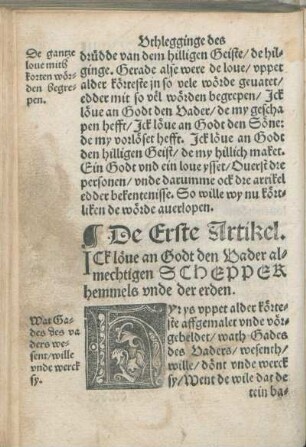 Vthlegginge des
De gantze
loue mitß
korten wör-
den begre-
pen.
drüdde van dem hilligen Geiste/ de hil-
ginge. Gerade alse were de loue/ vpper
alder körteste jn so vele wörde geuatet/
edder mit so vël wörden begrepen/ Jck
löue an Godt den Vader/ de my gescha
pen hefft/ Jck löue an Godt den Söne:
de my vorlöset hefft. Jck löue an Godt
den hilligen Geist/ de my hillich maket.
Ein Godt vnd ein loue ysset/ Ouerst dre
personen/ vnde darumme ock dre artikel
edder bekentenisse. So wille wy nu kört-
liken de wörde auerlopen.
¶ De Erste Artikel.
ICk löue an Godt den Vader al-
mechtigen SCHEPPER
hemmels vnde der erden.
Wat Ga-
des des va
ders we-
sent/ wille
vnde werck
sy.
HYr ys vpper alder körte-
ste affgemalet vnde vör-
gebeldet/ wath Gades
des Vaders/ wesenth/
wille/ dönt vnde werck
sy/ Went de wile dat de
tein ba-